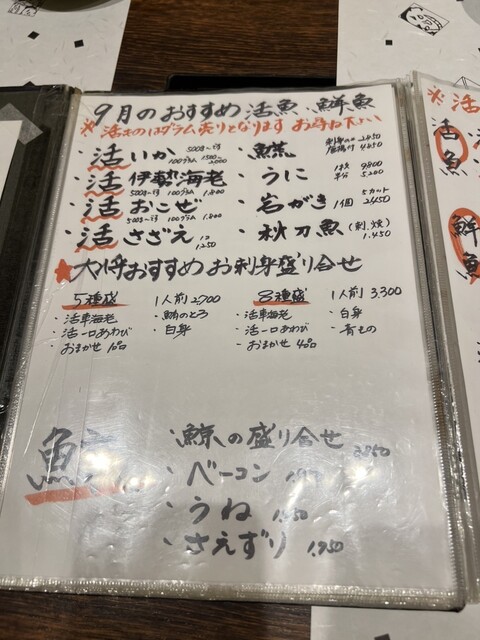 9月のおすすめ 活魚、鮮魚
※ 活きのいはグラム売りとなります お尋ね下さい
・活いか 500g〜位 100グラム 1500〜2,000
・活伊勢海老 500g〜位 100グラム 1.800
・活おこぜ 500g〜位 100グラム 1.800
・活さざえ 1コ 1.250
・うに 1枚 9800 半分 5.200
・岩がき 1個 5カット 2450
・秋刀魚 (刺.焼) 1.450
★大将おすすめ お刺身盛り合せ
5種盛 1人前 2,700
・活車海老 ・鮪のとろ
・活一口あわび ・白身
・おまかせ 1品
8種盛 1人前 3,300
・活車海老 ・白身
・活一口あわび ・青もの
・おまかせ 4品
・鯨の盛り合せ
・ベーコン
・うね
・さえずり 1,950
※活
活魚
鮮魚